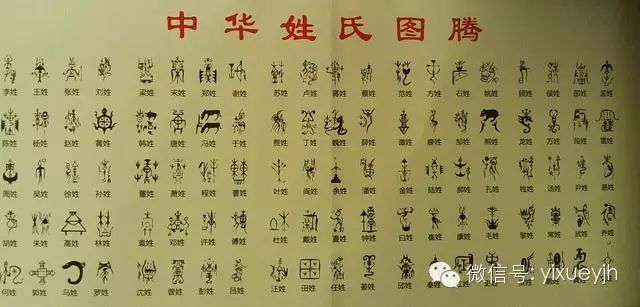 中华姓氏图腾
李姓 王姓 张姓 刘姓 梁姓 宋姓 郑姓 谢姓 苏姓 卢姓 蒋姓 蔡姓 范姓 方姓 石姓 姚姓 顾姓 侯姓 邵姓 孟姓
陈姓 杨姓 赵姓 黄姓 韩姓 唐姓 冯姓 于姓 贾姓 丁姓 魏姓 薛姓 谭姓 廖姓 邹姓 熊姓 龙姓 万姓 段姓 雷姓
周姓 吴姓 徐姓 孙姓 董姓 萧姓 程姓 曹姓 叶姓 阎姓 余姓 潘姓 金姓 陆姓 郝姓 孔姓 钱姓 汤姓 尹姓
胡姓 朱姓 高姓 林姓 袁姓 邓姓 许姓 傅姓 杜姓 戴姓 夏姓 钟姓 白姓 崔姓 康姓 毛姓 黎姓 常姓 武姓 乔姓
何姓 郭姓 马姓 罗姓 沈姓 曾姓 彭姓 吕姓 汪姓 田姓 任姓 姜姓 邱姓 秦姓
微信号: yixueyjh